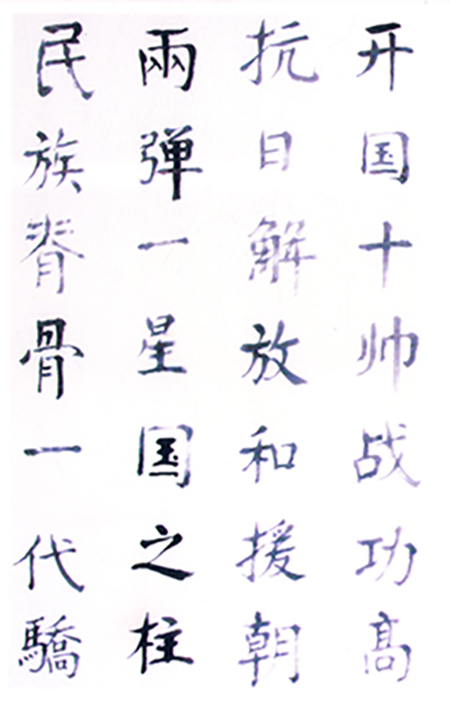 开国十帅战功高
抗日解放和援朝
兩弹一星国之柱
民族脊骨一代驕